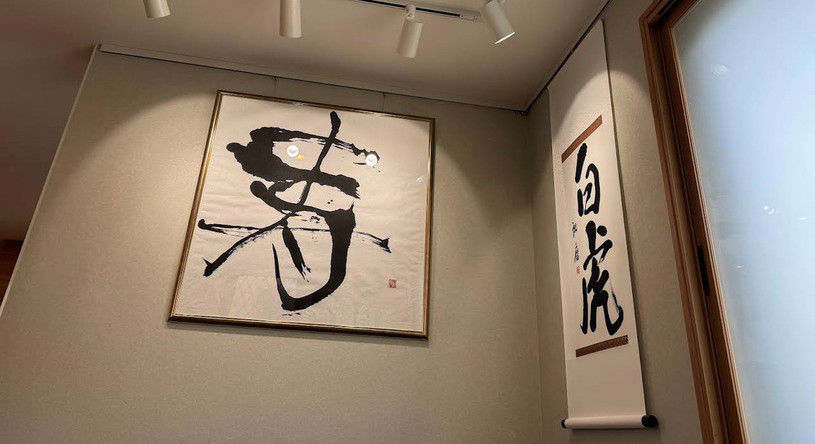 寿
白虎